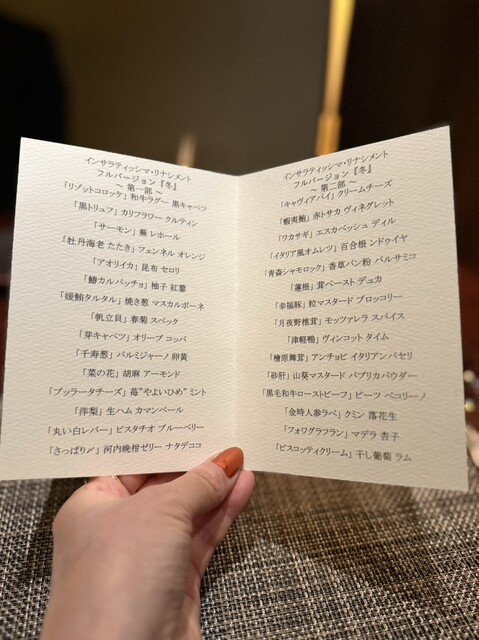 インサラティッシマ・リナシメント
フルバージョン『冬』
～ 第一部 ～
「リゾットコロッケ」和牛ラグー 黒キャベツ
「黒トリュフ」カリフラワー クルティン
「サーモン」蕪 レホール
「牡丹海老 たたき」フェンネル オレンジ
「アオリイカ」昆布 セロリ
「鰆カルパッチョ」柚子 紅蓼
「媛鮪タルタル」焼き葱 マスカルポーネ
「帆立貝」春菊 スペック
「芽キャベツ」オリーブ コッパ
「千寿葱」パルミジャーノ 卵黄
「菜の花」胡麻 アーモンド
「ブッラータチーズ」苺"やよいひめ"ミント
「洋梨」生ハム カマンベール
「丸い白レバー」ピスタチオ ブルーベリー
「さっぱり〆」河内晩柑ゼリー ナタデココ
インサラティッシマ・リナシメント
フルバージョン『冬』
～ 第二部 ～
「キャヴィアパイ」クリームチーズ
「蝦夷鮑」赤トサカ ヴィネグレット
「ワカサギ」エスカベッシュ ディル
「イタリア風オムレツ」百合根 ンドゥイヤ
「青森シャモロック」香草パン粉 バルサミコ
「蓮根」茸ペースト デュカ
「幸福豚」粒マスタード ブロッコリー
「月夜野椎茸」モッツァレラ スパイス
「津軽鴨」ヴィンコット タイム
「檜原舞茸」アンチョビ イタリアンパセリ
「砂肝」山葵マスタード パプリカパウダー
「黒毛和牛ローストビーフ」ビーツ ペコリーノ
「金時人参ラペ」クミン 落花生
「フォワグラフラン」マデラ 杏子
「ビスコッティクリーム」干し葡萄 ラム